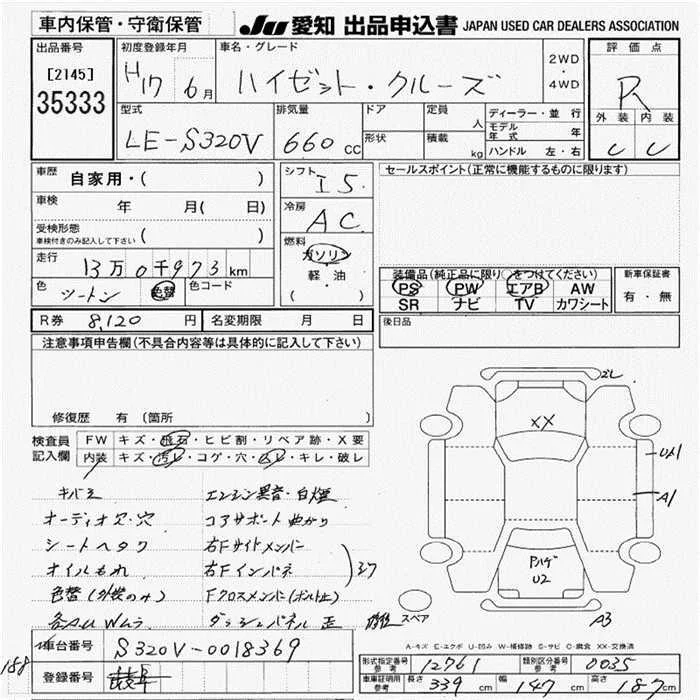 車内保管・守衛保管
JU 愛知 出品申込書 JAPAN USED CAR DEALERS ASSOCIATION
出品番号
[2145]
35333
初度登録年月
H17 6月
車名・グレード
ハイゼット・クルーズ
2WD
・
4WD
評価点
R
外装 内装
C C
型式
LE-S320V
排気量
660 cc
ドア
形状
定員
人
積載
kg
ディーラー・並行
モデル年式 年
ハンドル 左・右
車歴 自家用・( )
車検 年 月( 日)
受検形態
車検付きのみ記入して下さい ( )
走行 13万0千973km
色 ツートン 色替 色コード
シフト
I5
冷房
AC
燃料
ガソリン
軽油
( )
セールスポイント(正常に機能するものに限ります)
装備品(純正品に限り○をつけてください)
PS PW エアB AW
SR ナビ TV カワシート
新車保証書
有・無
R券 8,120 円 名変期限 月 日
後日品
注意事項申告欄(不具合内容等は具体的に記入して下さい)
修復歴 有 (箇所 )
検査員
記入欄
FW キズ・飛石・ヒビ割・リペア跡・X要
内装 キズ・汚レ・コゲ・穴・スレ・キレ・破レ
キバミ エンジン異音・白煙
オーディオ欠・穴 コアサポート曲がり
シートヘタり 右Fサイドメンバー
オイルもれ 右Fインパネ
色替(外装のみ) Fクロスメンバー(ボルト止)
各AU Wムラ ダッシュパネル 歪 修復
XX
UA1
A1
Pハゲ
U2
A3
スペア
A-キズ E-エクボ U-凹み W-補修跡 S-サビ C-腐食 XX-交換済
車台番号 S320V-0018369
登録番号
188
形式指定番号 参考 12761 類別区分番号 参考 0035
車庫証明用 参考 長さ 339 cm 幅 147 cm 高さ 187 cm